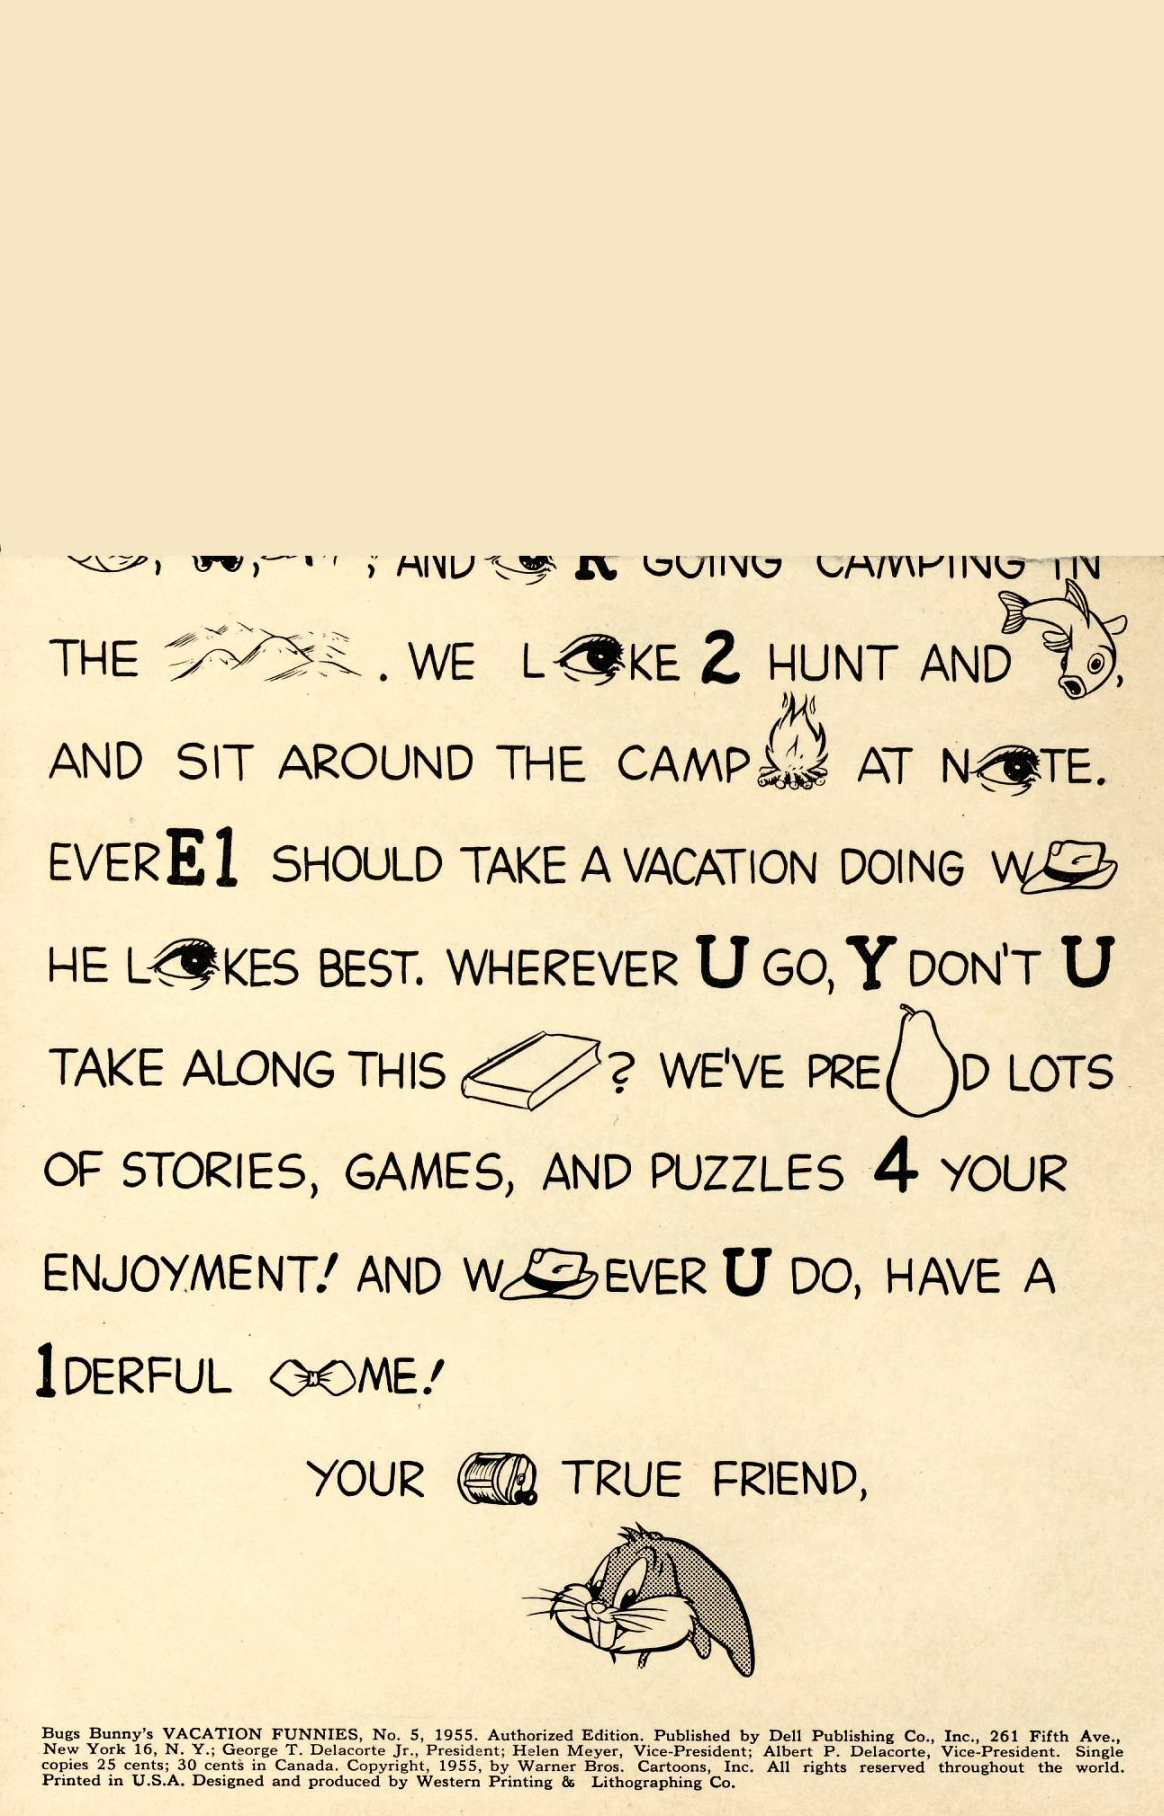 , , ; AND R GOING CAMPING IN
THE . WE L KE 2 HUNT AND ,
AND SIT AROUND THE CAMP AT N TE.
EVERE1 SHOULD TAKE A VACATION DOING W
HE L KES BEST. WHEREVER U GO, Y DON'T U
TAKE ALONG THIS ? WE'VE PRE D LOTS
OF STORIES, GAMES, AND PUZZLES 4 YOUR
ENJOYMENT! AND W EVER U DO, HAVE A
1DERFUL ME!
YOUR TRUE FRIEND,
Bugs Bunny's VACATION FUNNIES, No. 5, 1955. Authorized Edition. Published by Dell Publishing Co., Inc., 261 Fifth Ave.,
New York 16, N. Y.; George T. Delacorte Jr., President; Helen Meyer, Vice-President; Albert P. Delacorte, Vice-President. Single
copies 25 cents; 30 cents in Canada. Copyright, 1955, by Warner Bros. Cartoons, Inc. All rights reserved throughout the world.
Printed in U.S.A. Designed and produced by Western Printing & Lithographing Co.